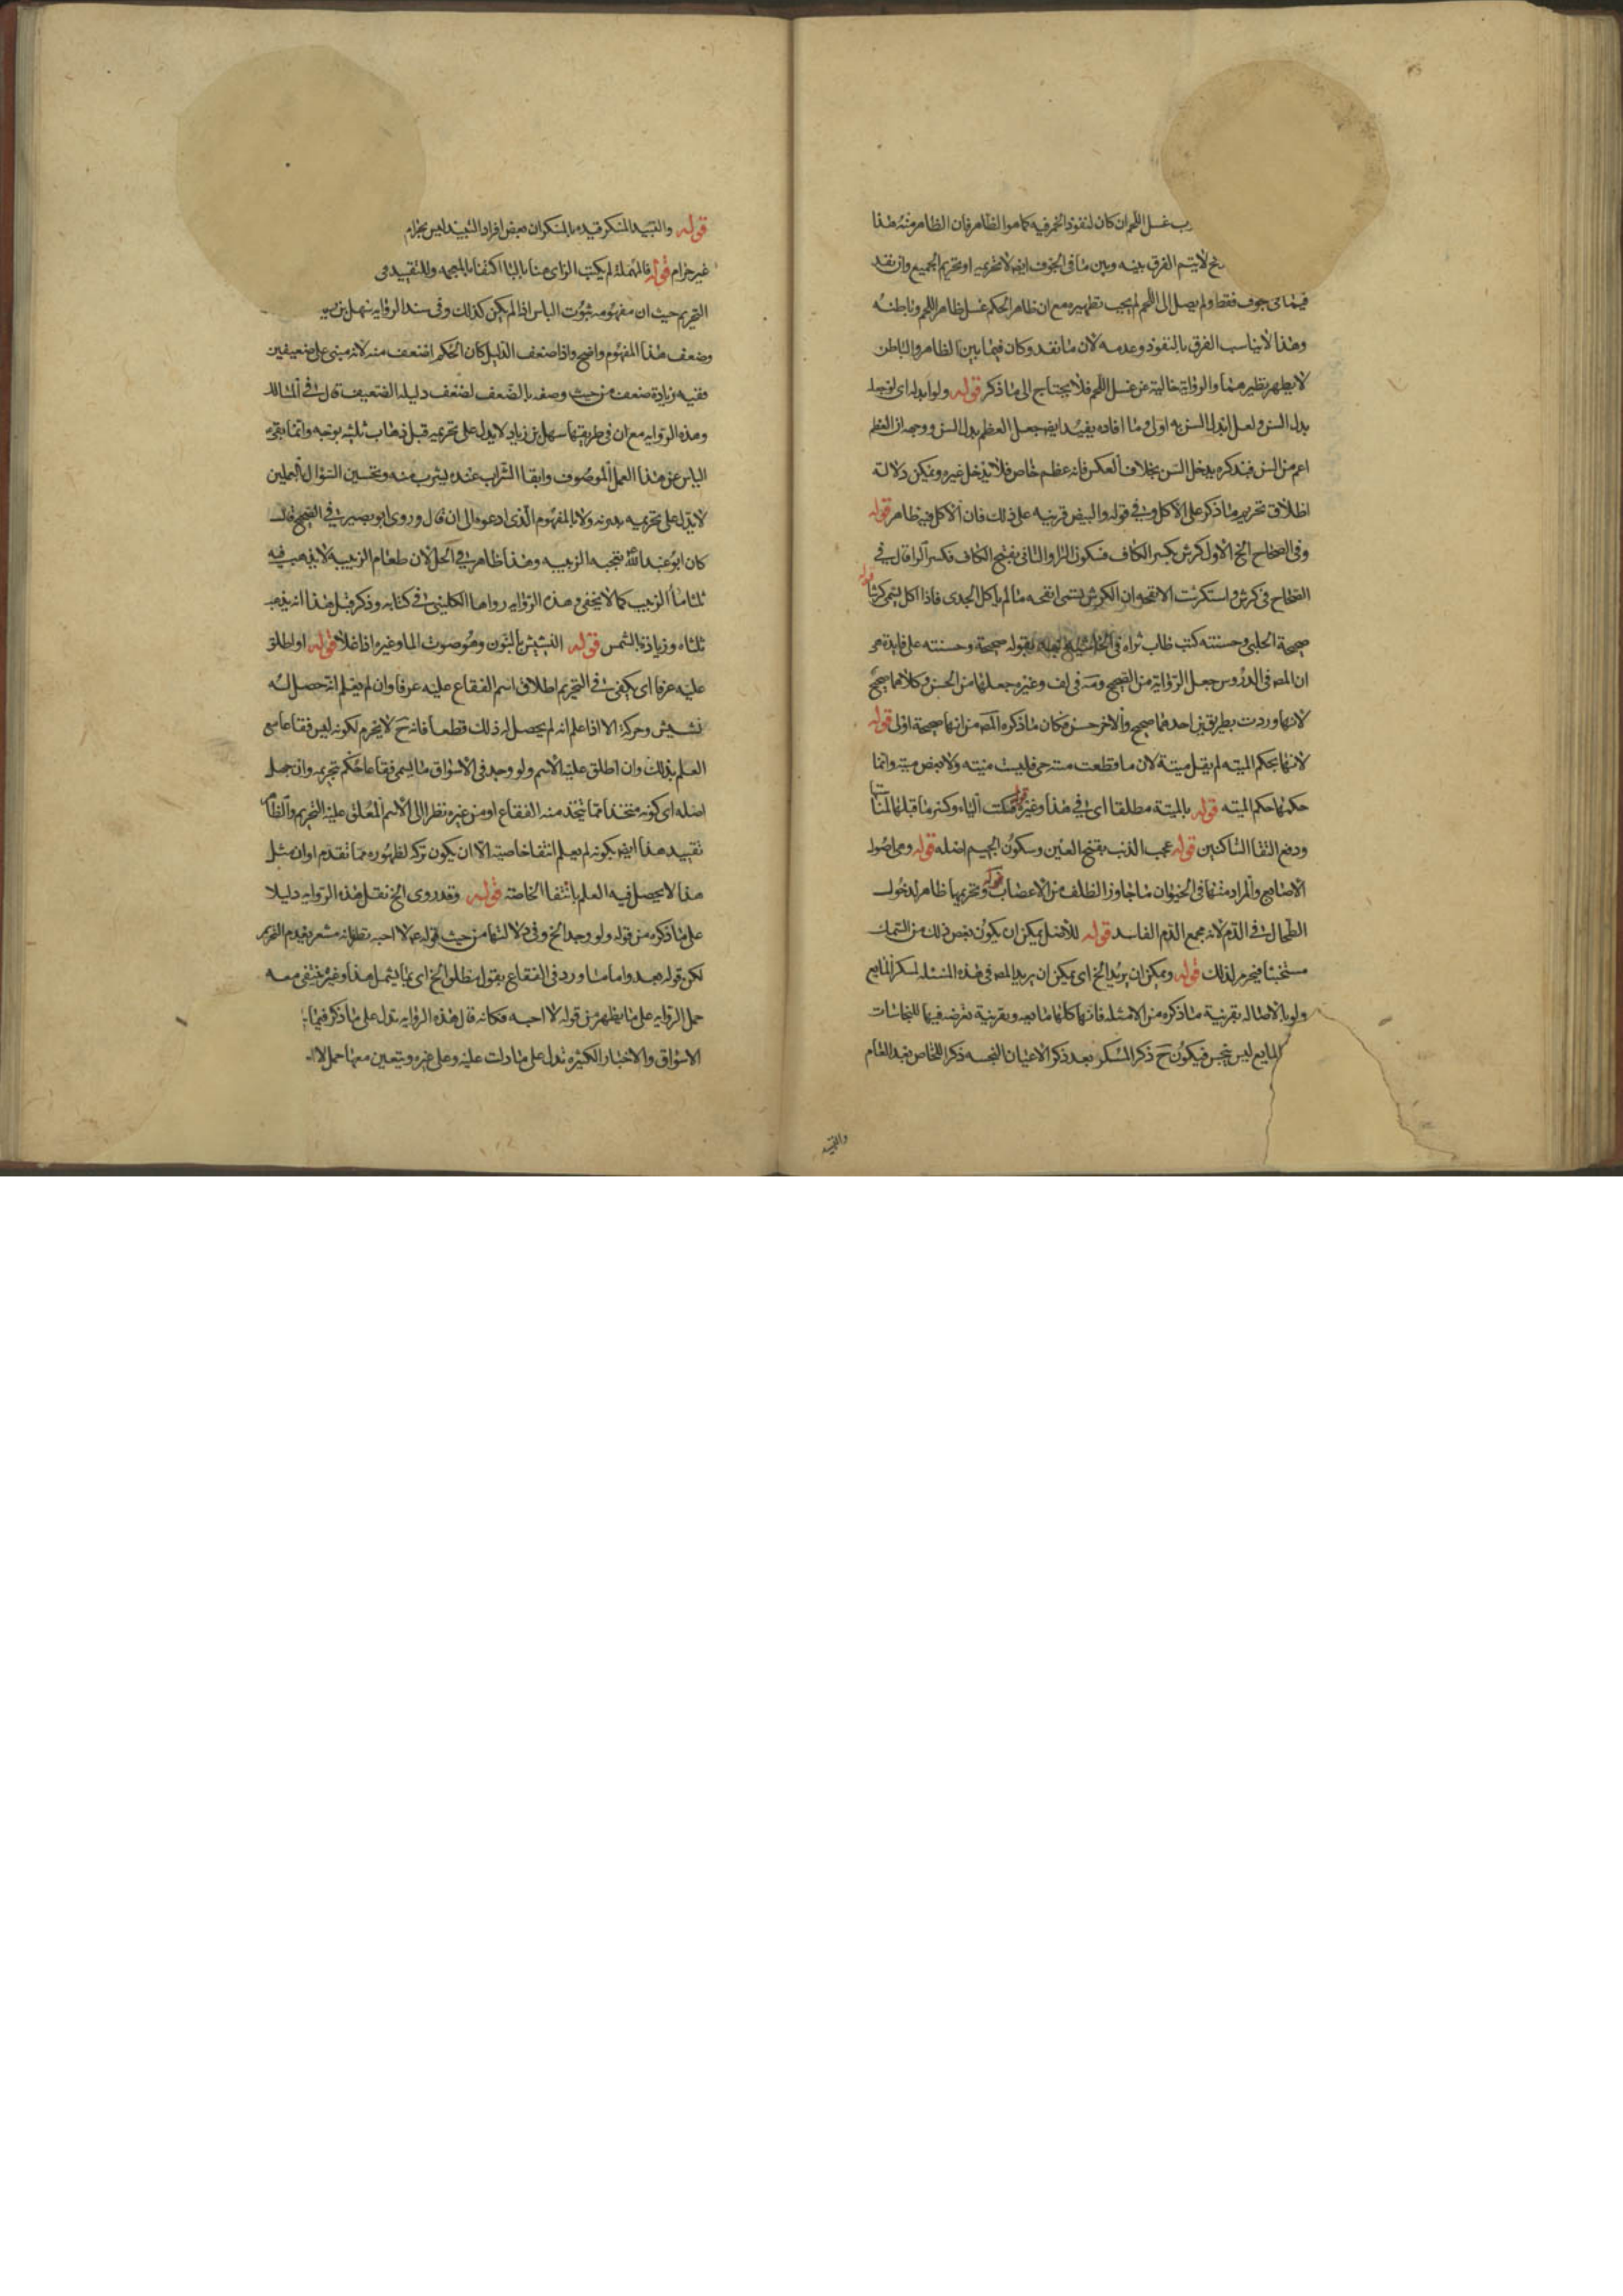 غسل اللحم ان كان لنفوذ الخمر فيه كما هو الظاهر فان الظاهر منه هذا
لا يتم الفرق بينه وبين ما في الجوف ايضا لا تحريمه او تحريم الجميع وان نفد
فيما في جوف فقط ولم يصل الى اللحم لم يجب تطهيره مع ان ظاهر الحكم غسل ظاهر اللحم وباطنه
وهذا لا يناسب الفرق بالنفوذ وعدمه لان ما نفد وكان فيما بين الظاهر والباطن
لا يطهر بظهرهما والرواية خالية عن غسل اللحم فلا يحتاج الى ما ذكر قوله ولو ابدله اى لو جعله
بدل السن ولعل ابدال السن به اولى وما افاده يفيد ايضا جعل العظم بدل السن ووجهه ان العظم
اعم من السن فبذكره يدخل السن بخلاف العكس فانه عظم خاص فلا يدخل غيره ويمكن دلالة
اطلاق تحريم ما ذكر على الاكل وفي قوله والبيض قرينه على ذلك فان الاكل فيه ظاهر قوله
وفي الصحاح الخ الاول كرش بكسر الكاف فسكون الرا والثاني بفتح الكاف فكسر الرا قال في
الصحاح في كرش واستكرشت الانفحه ان الكرش يسمى انفحه ما لم ياكل الجدى فاذا اكل يسمى كرشا قوله
صحيحة الحلبي وحسنته كتب طاب ثراه في الحاشية بقوله صحيحة وحسنته على فايدة هي
ان المصه في الدروس جعل الرواية من الصحيح وفي لف وغيره جعلها من الحسن وكلاهما صحيح
لانها وردت بطريقين احدهما صحيح والاخر حسن فكان ما ذكره المصه من انها صحيحة اولى قوله
لانها بحكم الميته لم يقل ميتة لان ما قطعت منه حى فليست ميته ولا بعض ميته وانما
حكمها حكم الميته قوله بالميتة مطلقا اى في هذا وغيره قوله الياء وكسر ما قبلها لمناسبتها
ودفع التقا الساكنين قوله عجب الذنب بفتح العين وسكون الجيم اصله قوله وهي اصول
الاصابع والمراد منها في الحيوان ما جاوز الظلف من الاعصاب قوله وتحريمها ظاهر لدخول
الطحال في الدم لانه مجمع الدم الفاسد قوله للاصل يمكن ان يكون بعض ذلك من السمك
مستخبثا فيحرم لذلك قوله ويمكن ان يريد الخ اى يمكن ان يريد المصه في هذه المسئله لسكر المايع
ولو بالاصاله بقرينة ما ذكره من الامثله فانها كلها مايعه وبقرينة تعرضه فيها للنجاسات
المايع ليس بنجس فيكون ح ذكر المسكر بعد ذكر الاعيان النجسه ذكر الخاص بعد العام
والنبيذ
قوله والنبيذ المسكر قيده بالمسكر لان بعض افراد النبيذ ليس بحرام
غير حرام قوله فالمهملة لم يكتب الزاى هنا بالبا اكتفا بالمعجمه وللتقييد في
التحريم حيث ان مفهومه ثبوت الباس اذا لم يكن كذلك وفي سند الرواية سهل بن
وضعف هذا المفهوم واضح واذا ضعف الدليل كان الحكم اضعف منه لانه مبنى على ضعيفين
ففيه زيادة ضعف من حيث وصفه بالضعف لضعف دليله الضعيف قال في المسالك
وهذه الرواية مع ان في طريقها سهل بن زياد لا تدل على تحريمه قبل ذهاب ثلثيه بوجه وانما نفى فيه
الباس عن هذا العمل الموصوف وابقا الشراب عنده يشرب منه وتخسين السؤال العملين
لا يدل على تحريمه بدونه ولا بالمفهوم الذى ادعوه الى ان قال وروى ابو بصير في الصحيح قال
كان ابو عبد الله تعجبه الزبيبه وهذا ظاهر في الحل لان طعام الزبيبة لا يذهب فيه
ثلثا ما الزبيب كما لا يخفى وهذه الرواية رواها الكليني في كتابه وذكر قبل هذا انه يذهب
ثلثاه وزيادة بالشمس قوله النشيش بالنون وهو صوت الما وغيره اذا غلا قوله او اطلق
عليه عرفا اى يكفى في التحريم اطلاق اسم الفقاع عليه عرفا وان لم يعلم انه حصل له
نشيش وحركة الا اذا علم انه لم يحصل له ذلك قطعا فانه ح لا يحرم لكونه ليس فقاعا مع
العلم بذلك وان اطلق عليه الاسم ولو وجد في الاسواق ما يسمى فقاعا حكم بتحريمه وان جهل
اصله اى كونه متخذا مما يتخذ منه الفقاع او من غيره نظرا الى الاسم المعلق عليه التحريم والظاهر
تقييد هذا ايضا بكونه لم يعلم انتفا خاصيته الا ان يكون تركه لظهوره مما تقدم او ان مثل
هذا لا يحصل فيه العلم بانتفا الخاصة قوله وقد روى الخ نقل هذه الرواية دليلا
على ما ذكره من قوله ولو وجد الخ وفي دلالتها من حيث قوله لا احبه نظر لانه مشعر بعدم التحريم
لكن قوله بعد واما ما ورد في الفقاع بقول مطلق الخ اى بما يشمل هذا وغيره يقتضى معه
حمل الرواية على ما يظهر من قوله لا احبه فكانه قال هذه الرواية تدل على ما ذكر فيما
الاسواق والاخبار الكثيره تدل على ما دلت عليه وعلى غيره ويتعين معها حمل لا